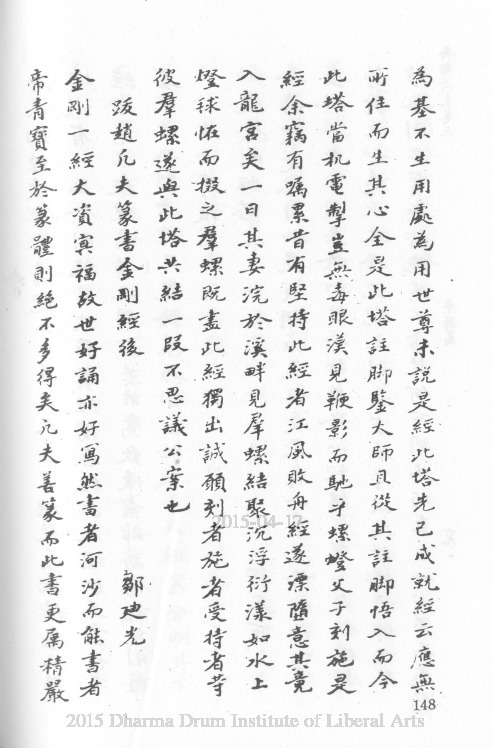 為基不生用處為用世尊未說是經此塔先已成就經云應無
所住而生其心全是此塔註脚鑒大師且從其註脚悟入而今
此塔當机電掣豈無毒眼漢見鞭影而馳乎螺燈父子刻施是
經余竊有囑累昔有堅持此經者江風敗舟經遂漂墮意其竟
入龍宮矣一日其妻浣於溪畔見羣螺結聚沉浮衍漾如水上
燈毬怪而掇之羣螺既盡此經獨出誠願刻者施者受持者等
彼羣螺遂與此塔共結一段不思議公案也
鄒迪光
跋趙凡夫篆書金剛經後
金剛一經大資冥福故世好誦亦好寫然書者河沙而能書者
帝青寶至於篆體則絕不多得矣凡夫善篆而此書更属精嚴
148
2015-04-17
2015 Dharma Drum Institute of Liberal Arts